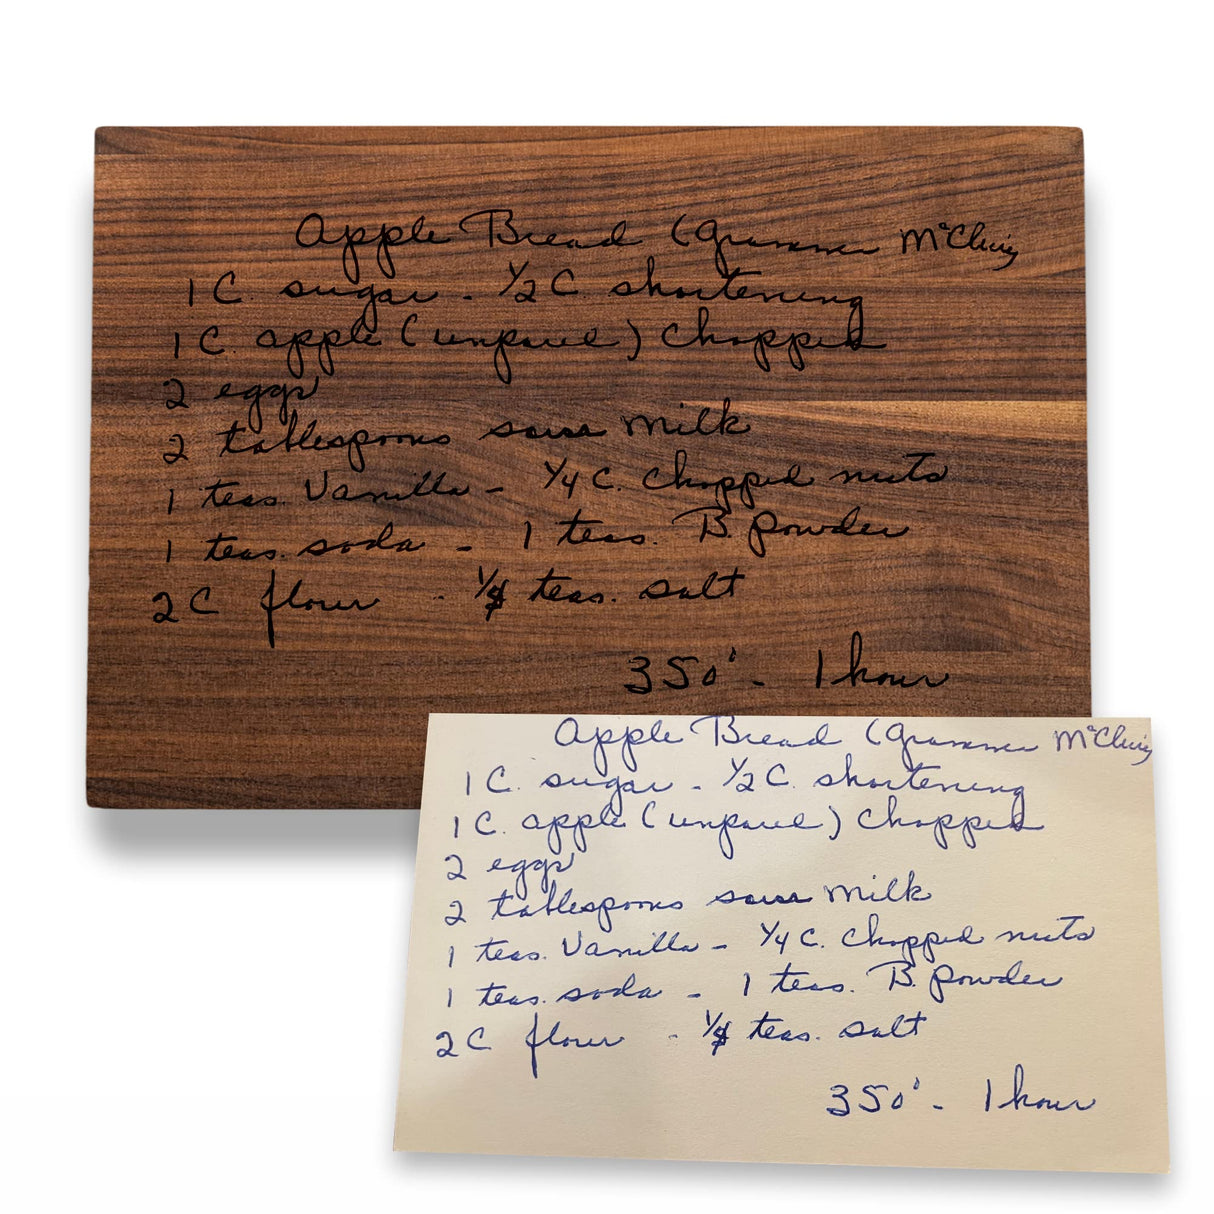 Apple Bread (Grammer
1 C. sugar - 1/2 C. shortening
1 C. apple (unpared) chopped
2 eggs
2 tablespoons sour milk
1 teas. Vanilla - 1/4 C. chopped nuts
1 teas. soda - 1 teas. B. powder
2 C flour - teas. salt
350° - 1 hour
Apple Bread (Grammer
1 C. sugar - 1/2 C. shortening
1 C. apple (unpared) chopped
2 eggs
2 tablespoons sour milk
1 teas. Vanilla - 1/4 C. chopped nuts
1 teas. soda - 1 teas. B. powder
2 C flour - teas. salt
350° - 1 hour